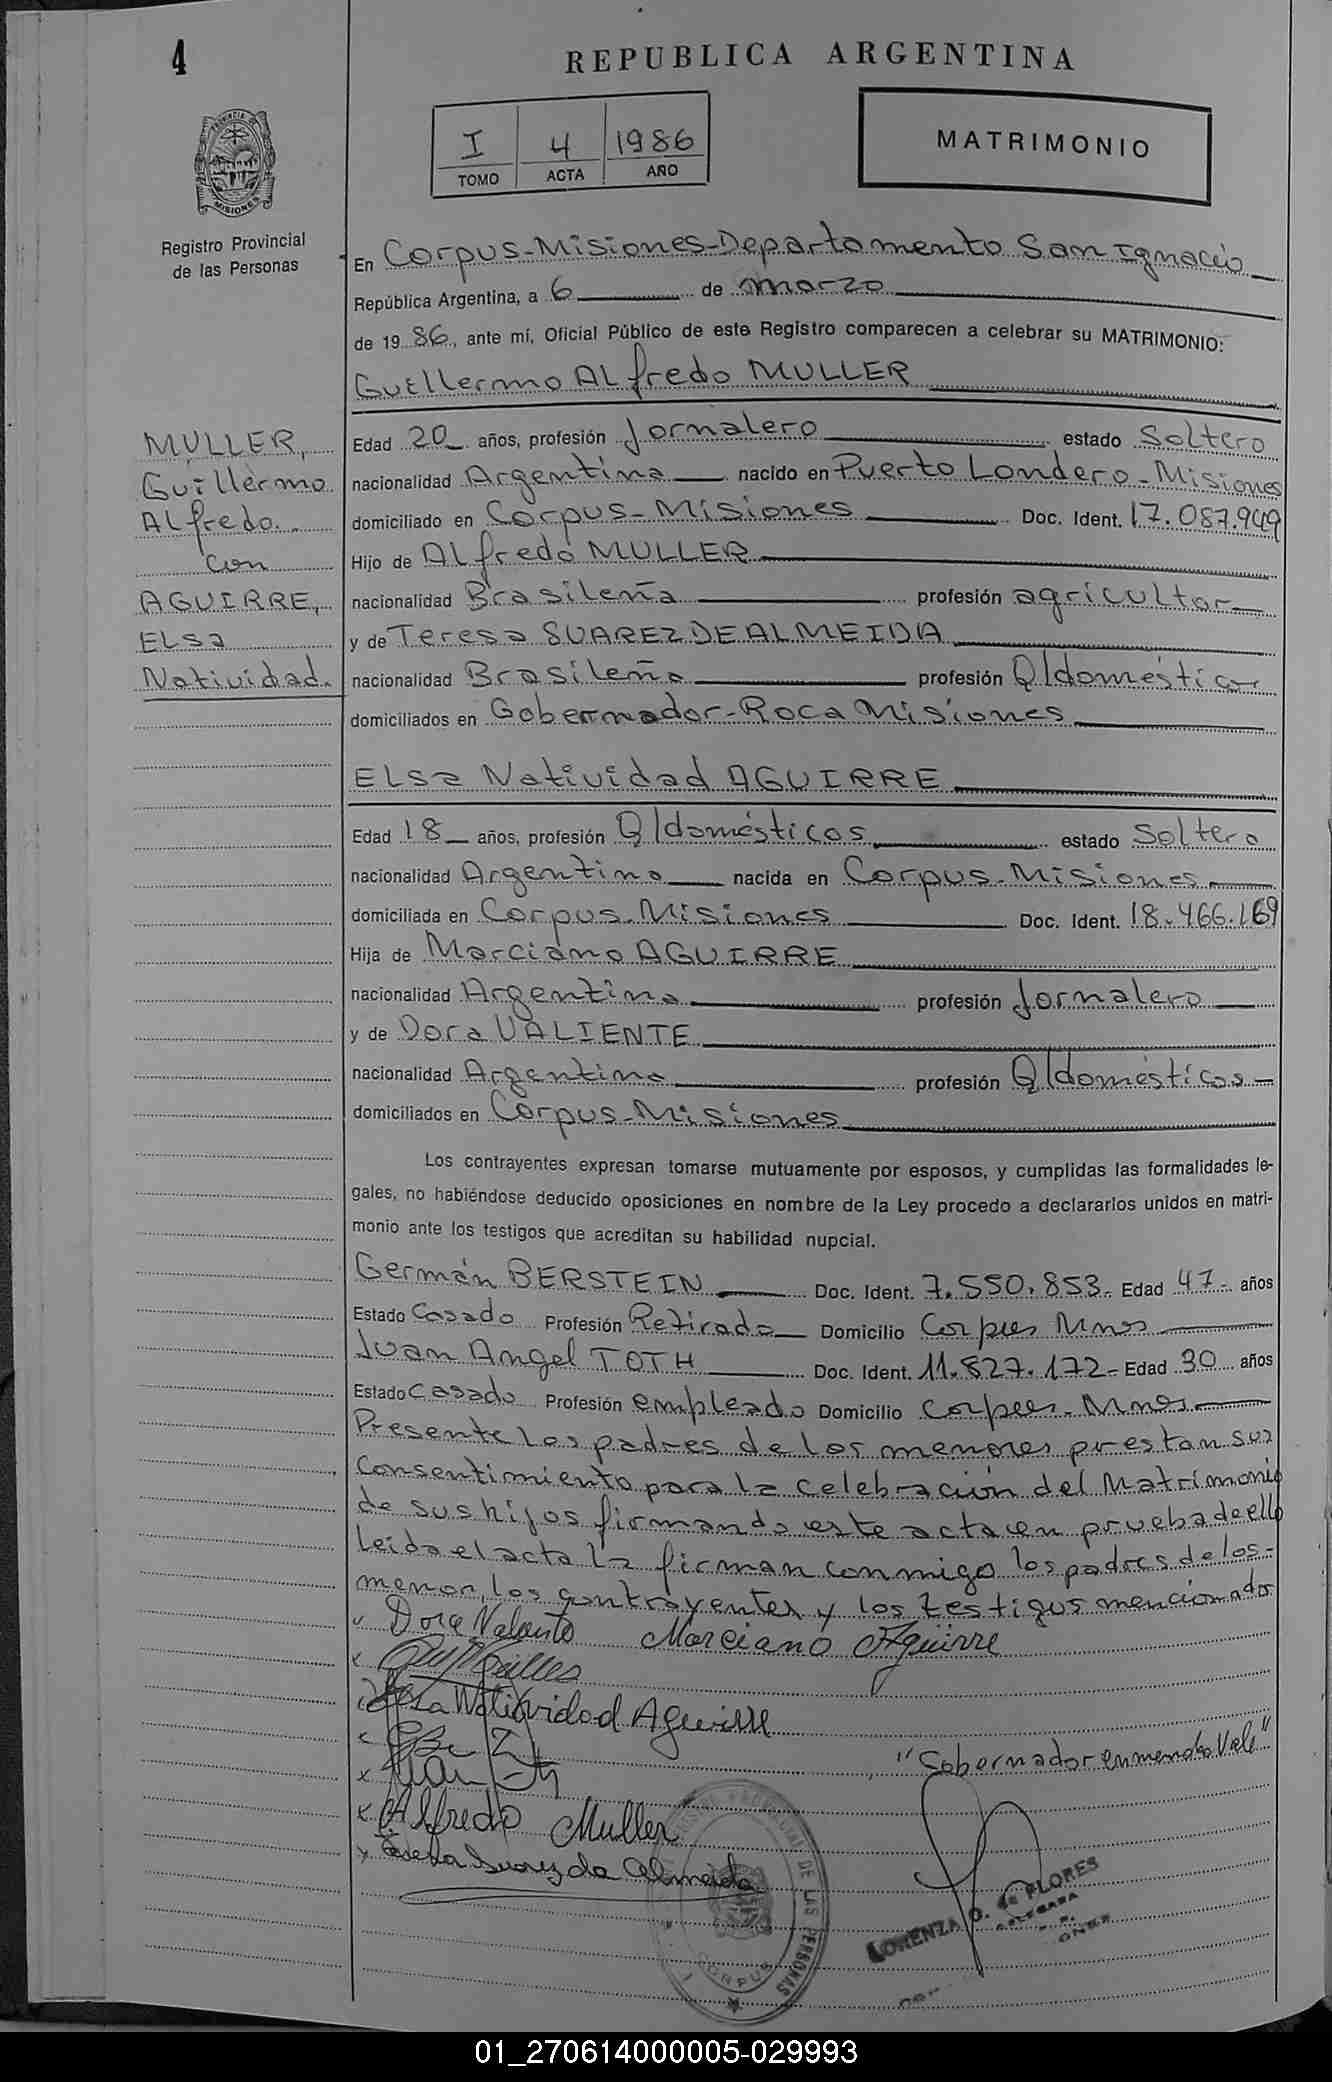 4
REPUBLICA ARGENTINA
I 4 1986
TOMO ACTA AÑO
MATRIMONIO
PROVINCIA DE
MISIONES
Registro Provincial
de las Personas
MULLER,
Guillermo
Alfredo.
con
AGUIRRE,
Elsa
Natividad.
En Corpus-Misiones-Departamento San Ignacio
República Argentina, a 6 de marzo
de 1986, ante mí, Oficial Público de este Registro comparecen a celebrar su MATRIMONIO:
Guillermo Alfredo MULLER
Edad 20 años, profesión Jornalero estado Soltero
nacionalidad Argentina nacido en Puerto Londero-Misiones
domiciliado en Corpus-Misiones Doc. Ident. 17.087.949
Hijo de Alfredo MULLER
nacionalidad Brasileña profesión agricultor
y de Teresa SUAREZ DE ALMEIDA
nacionalidad Brasileña profesión Q/domésticos
domiciliados en Gobernador-Roca Misiones
Elsa Natividad AGUIRRE
Edad 18 años, profesión Q/domésticos estado Soltera
nacionalidad Argentina nacida en Corpus-Misiones
domiciliada en Corpus-Misiones Doc. Ident. 18.466.169
Hija de Marciano AGUIRRE
nacionalidad Argentina profesión Jornalero
y de Dora VALIENTE
nacionalidad Argentina profesión Q/domésticos-
domiciliados en Corpus-Misiones
Los contrayentes expresan tomarse mutuamente por esposos, y cumplidas las formalidades le-
gales, no habiéndose deducido oposiciones en nombre de la Ley procedo a declararlos unidos en matri-
monio ante los testigos que acreditan su habilidad nupcial.
Germán BERSTEIN Doc. Ident. 7.550.853. Edad 47- años
Estado Casado Profesión Retirado Domicilio Corpus Mnes
Juan Angel TOTH Doc. Ident. 11.827.172- Edad 30 años
Estado casado Profesión empleado Domicilio Corpus-Mnes
Presente los padres de los menores prestan sus
consentimiento para la celebración del Matrimonio
de sus hijos firmando este acta en prueba de ello
leida el acta la firman conmigo los padres de los-
menor, los contrayentes y los testigos mencionados
Dora Valiente Marciano Aguirre
Elsa Natividad Aguirre
"Gobernador enmendado Vale"
Alfredo Muller
Teresa Suarez da Almeida
DE LAS PERSONAS
CORPUS
LORENZA O. de FLORES
DELEGADA
01_270614000005-029993